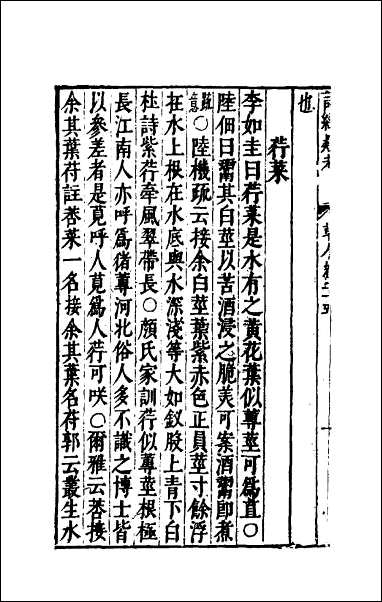 也
荇菜
李如圭曰荇菜是水有之黃花葉似蓴莖可爲直〇
陸佃曰鬻其白莖以苦酒浸之脆美可案酒鬻卽煮
意〇陸機䟽云接余白莖葉紫赤色正員莖寸餘浮
在水上根在水底與水深淺等大如釵股上青下白
杜詩紫荇牽風翠帶長〇顏氏家訓荇似蓴莖根極
長江南人亦呼爲猪蓴河北俗人多不識之博士皆
以參差者是莧呼人莧爲人荇可咲〇爾雅云莕接
余其葉苻註莕菜一名接余其葉名苻郭云叢生水